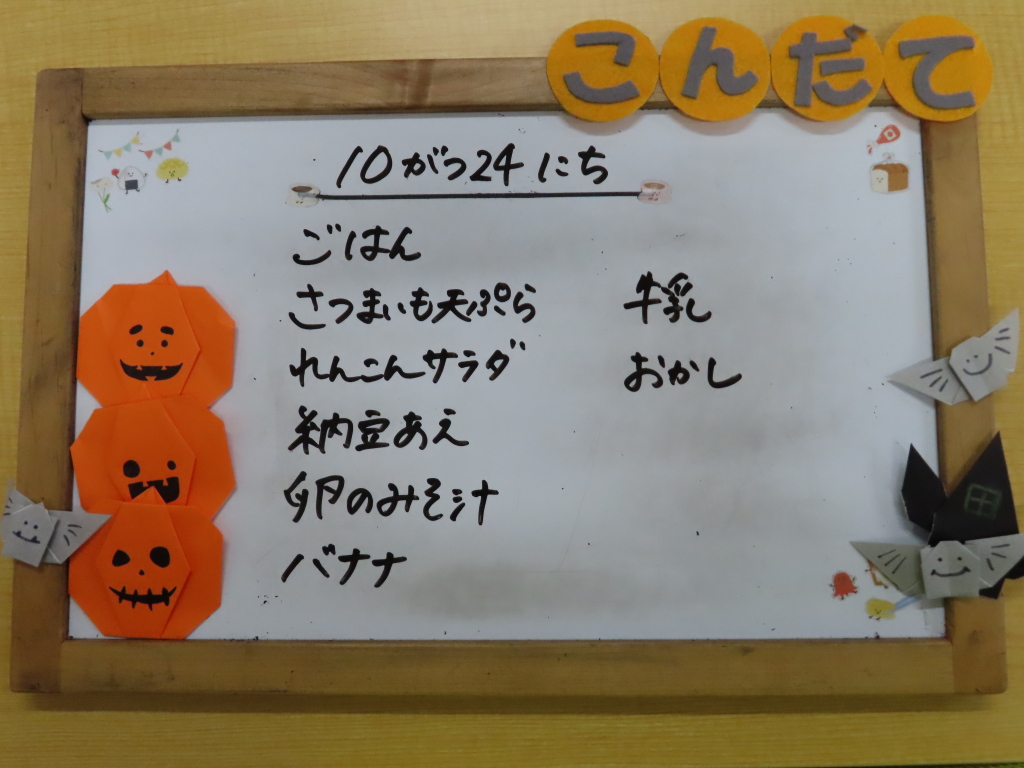 こんだて
10がつ24にち
ごはん
さつまいも天ぷら
れんこんサラダ
納豆あえ
卵のみそ汁
バナナ
牛乳
おかし